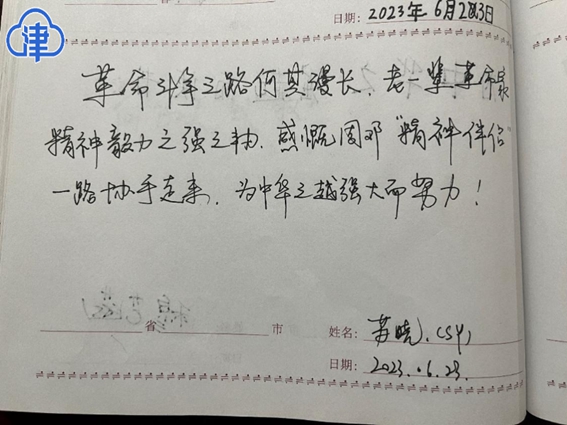 津
日期: 2023年6月23日
革命斗争之路何其漫长、老一辈革命家
精神毅力之强之韧.感慨周邓“精神伴侣”
一路协手走来.为中华之越强大而努力!
省 市 姓名: 苏晓
日期: 2023.06.23.